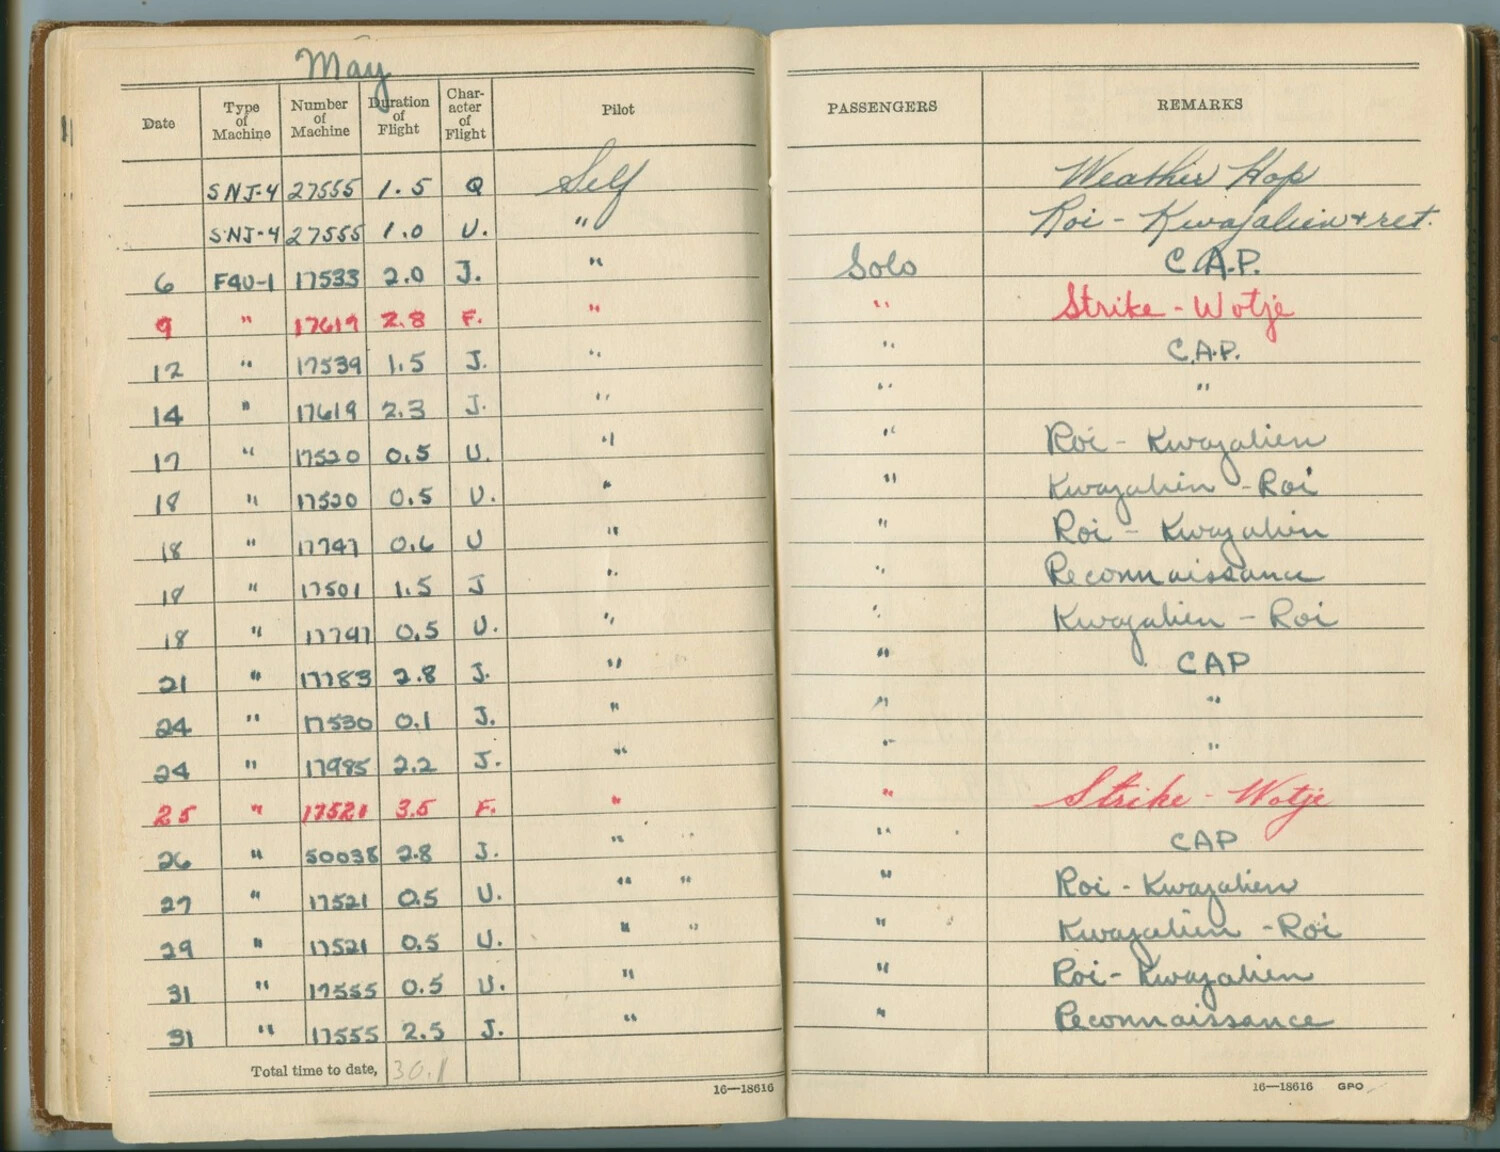 May
Date Type of Machine Number of Machine Duration of Flight Character of Flight Pilot PASSENGERS REMARKS
SNJ-4 27555 1.5 Q Self Weather Hop
SNJ-4 27555 1.0 U. " Roi - Kwajalien + ret.
6 F4U-1 17533 2.0 J. " Solo C.A.P.
9 " 17619 2.8 F. " " Strike - Wotje
12 " 17539 1.5 J. " " C.A.P.
14 " 17619 2.3 J. " " "
17 " 17520 0.5 U. " " Roi - Kwazalien
18 " 17520 0.5 U. " " Kwazalien - Roi
18 " 17797 0.6 U " " Roi - Kwazalien
18 " 17501 1.5 J " " Reconnaissance
18 " 17797 0.5 U. " " Kwazalien - Roi
21 " 17783 2.8 J. " " CAP
24 " 17530 0.1 J. " " "
24 " 17985 2.2 J. " " "
25 " 17521 3.5 F. " " Strike - Wotje
26 " 50038 2.8 J. " " CAP
27 " 17521 0.5 U. " " " Roi - Kwazalien
29 " 17521 0.5 U. " " " Kwazalien - Roi
31 " 17555 0.5 U. " " Roi - Kwazalien
31 " 17555 2.5 J. " " Reconnaissance
Total time to date, 30.1
16—18616 16—18616 GPO